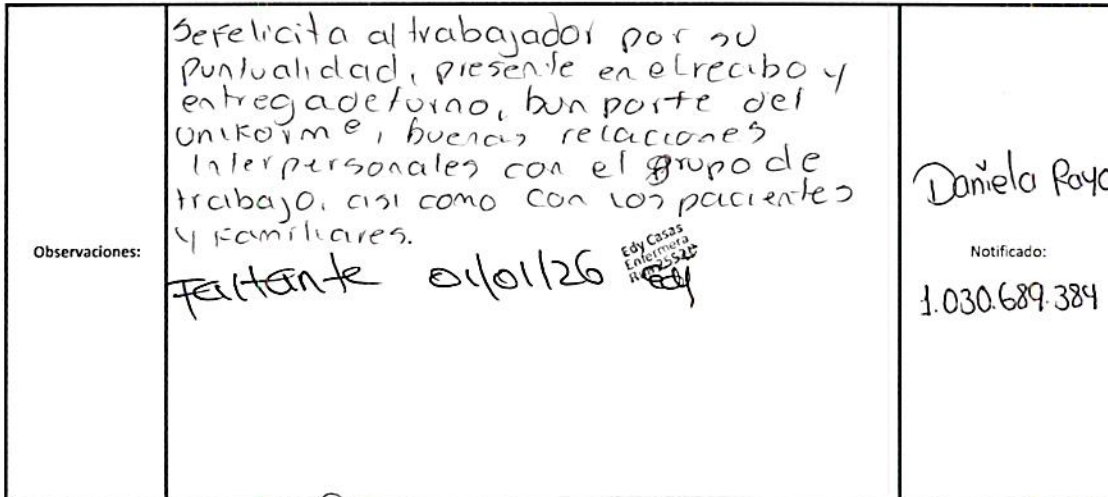 Se felicita al trabajador por su
puntualidad, presente en el recibo y
entrega de turno, bun porte del
uniforme, buenas relaciones
interpersonales con el grupo de
trabajo, asi como con los pacientes
y familiares.
Observaciones:
Faltante 01/01/26
Edy Casas
Enfermera
Edy
Daniela Rayo
Notificado:
1.030.689.384